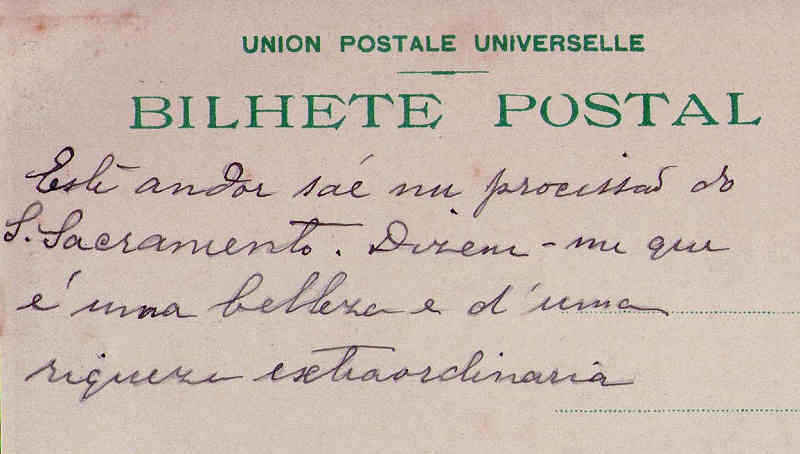 UNION POSTALE UNIVERSELLE
BILHETE POSTAL
Este andor saé na procissaõ do
S. Sacramento. Dizem-me que
é uma belleza e d'uma
riqueza extraordinaria